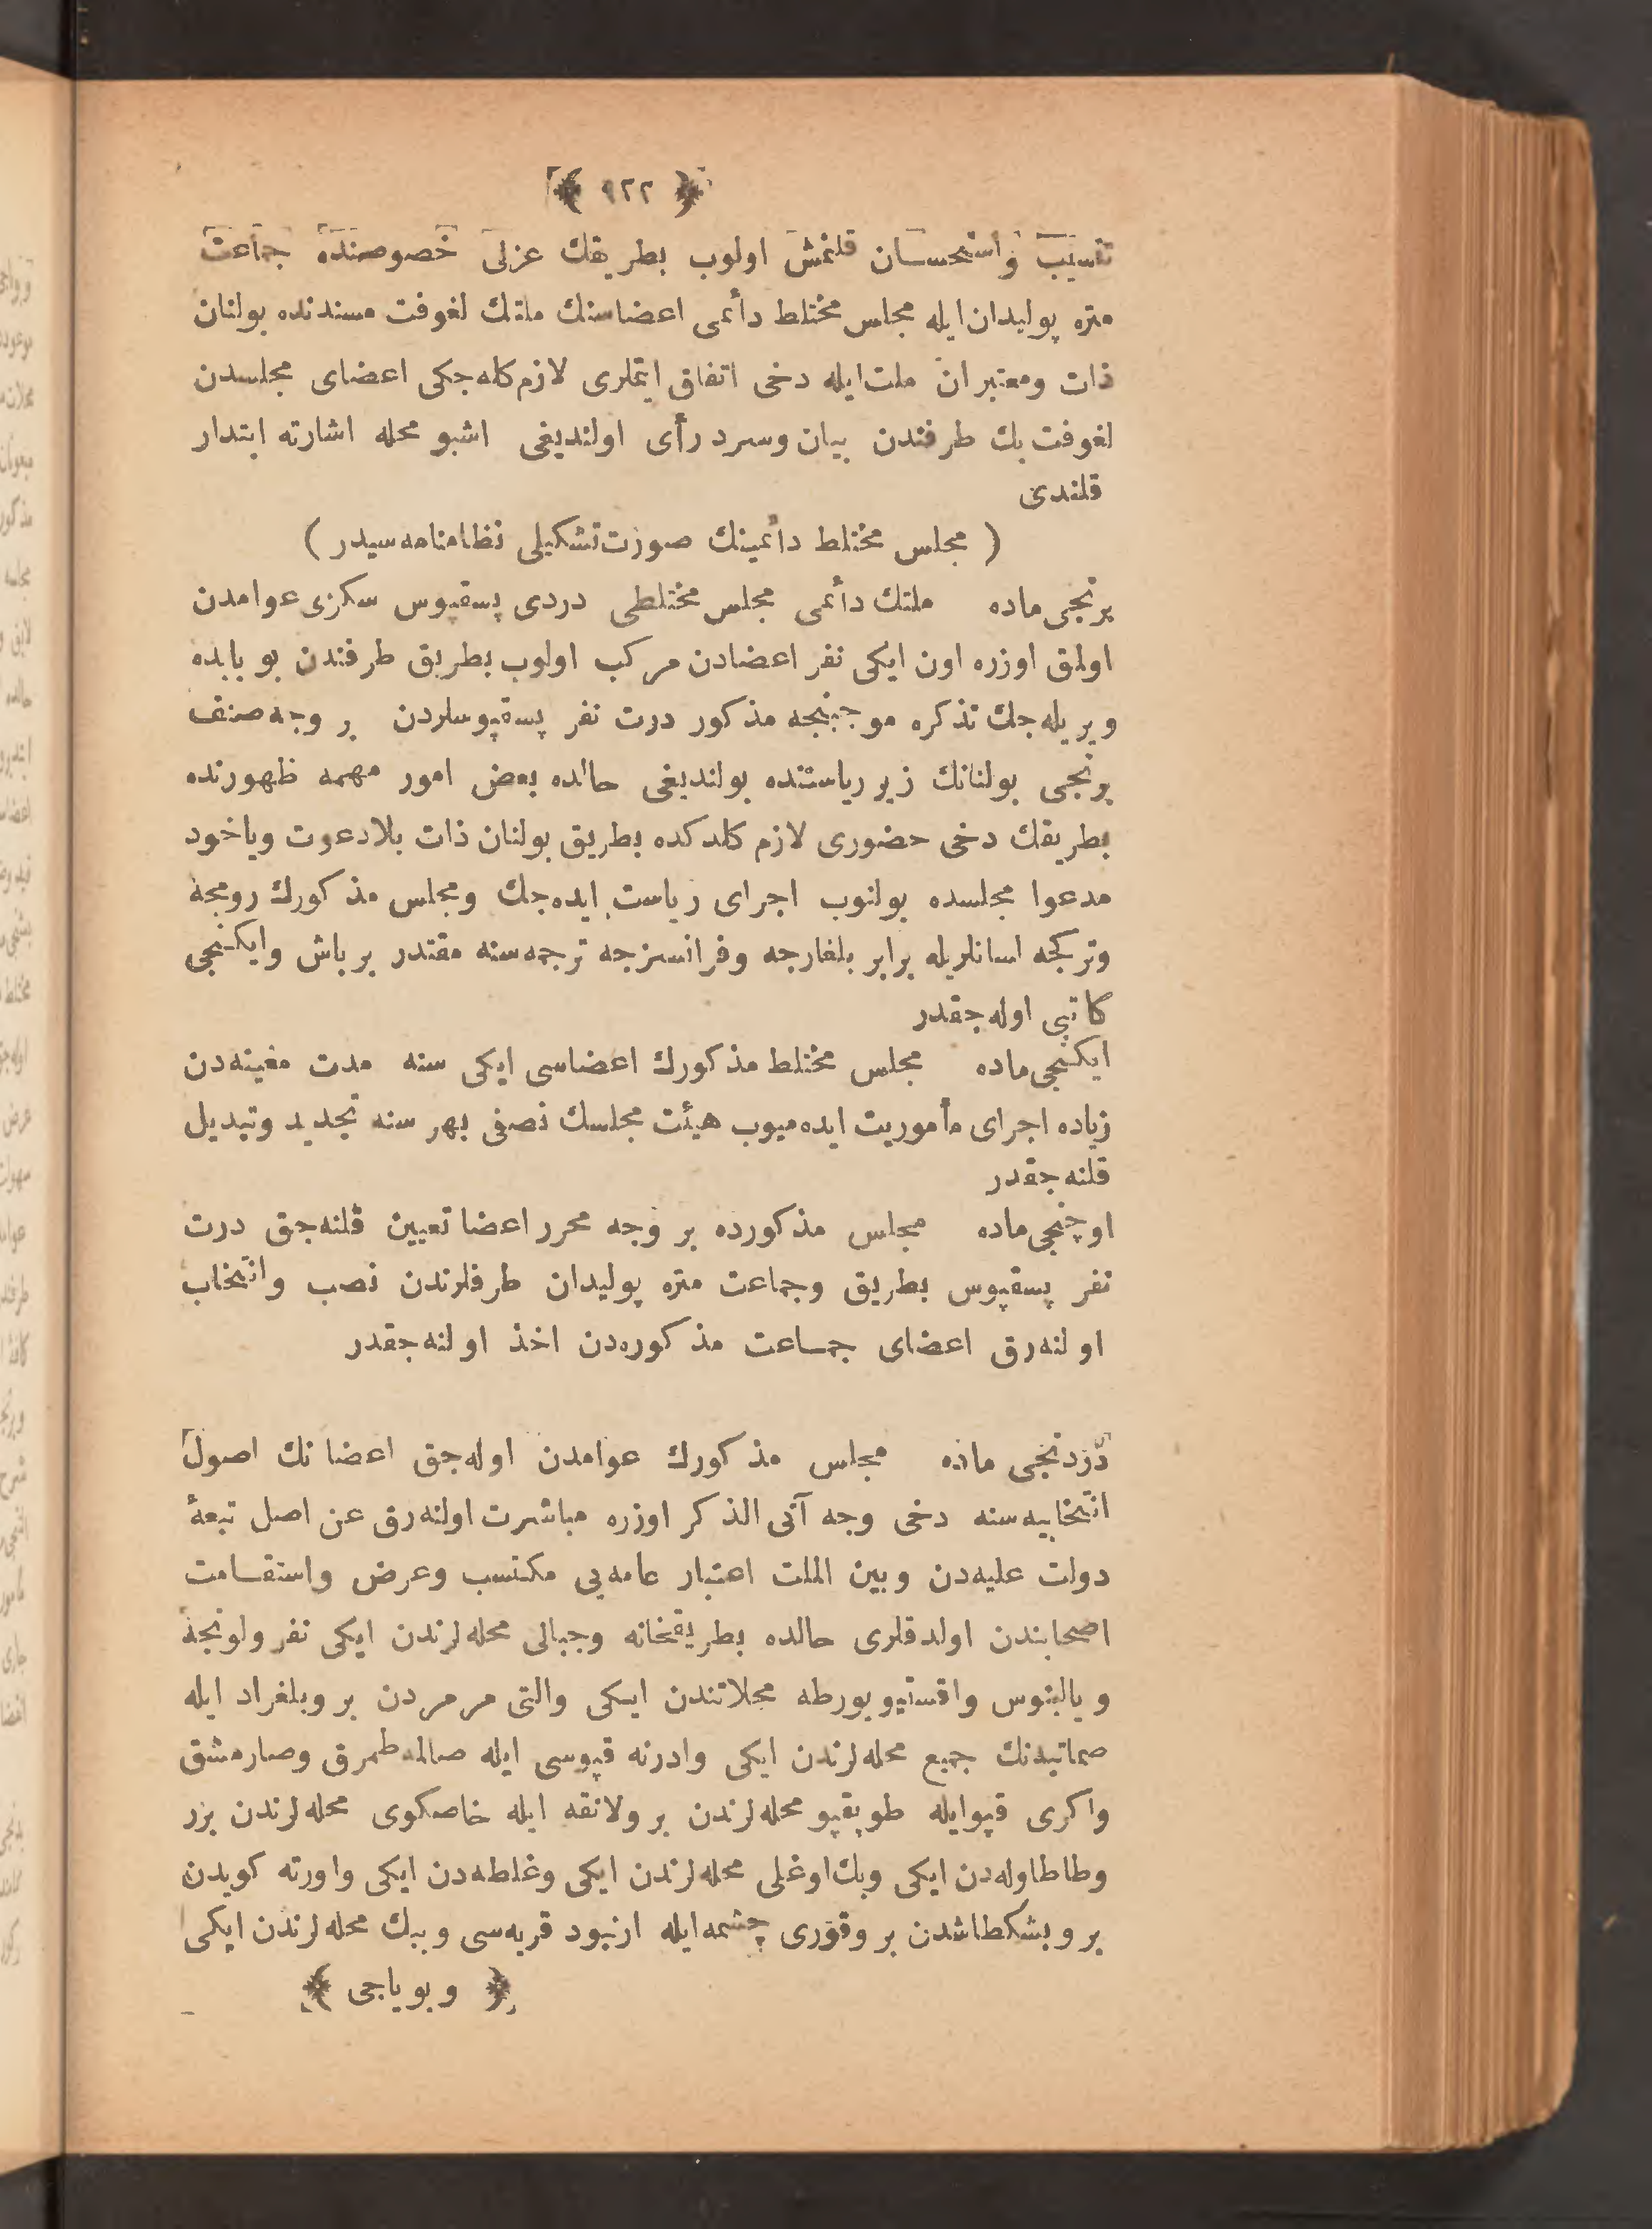 ﴿ ٩٢٢ ﴾
تنسیب و استحسان قلنمش اولوب بطریقك عزلی خصوصنده جماعت
متره پولیدان ایله مجلس مختلط دأئمی اعضاسنك ملتك لغوفت مسندنده بولنان
ذات ومعتبران ملت ایله دخی اتفاق ایتملری لازم كله جكی اعضای مجلسدن
لغوفت بك طرفندن بیان وسرد رأی اولندیغی اشبو محله اشارته ابتدار
قلندی
( مجلس مختلط دائمینك صورت تشكیلی نظامنامه سیدر )
برنجی ماده ملتك دأئمی مجلس مختلطی دردی پسقپوس سكزی عوامدن
اولمق اوزره اون ایكی نفر اعضادن مركب اولوب بطریق طرفندن بو بابده
ویریله جك تذكره موجبنجه مذكور درت نفر پسقپوسلردن بر وجه صنف
برنجی بولنانك زیر ریاستنده بولندیغی حالده بعض امور مهمه ظهورنده
بطریقك دخی حضوری لازم كلدكده بطریق بولنان ذات بلادعوت ویاخود
مدعوا مجلسده بولنوب اجرای ریاست ایده جك ومجلس مذكورك رومجه
وتركجه لسانلریله برابر بلغارجه وفرانسزجه ترجمه سنه مقتدر بر باش وایكنجی
كاتبی اوله جقدر
ایكنجی ماده مجلس مختلط مذكورك اعضاسی ایكی سنه مدت معینه دن
زیاده اجرای مأموریت ایده میوب هیئت مجلسك نصفی بهر سنه تجدید وتبدیل
قلنه جقدر
اوچنجی ماده مجلس مذكورده بر وجه محرر اعضا تعیین قلنه جق درت
نفر پسقپوس بطریق وجماعت متره پولیدان طرفلرندن نصب وانتخاب
اولنه رق اعضای جماعت مذكوره دن اخذ اولنه جقدر
دردنجی ماده مجلس مذكورك عوامدن اوله جق اعضانك اصول
انتخابیه سنه دخی وجه آتی الذكر اوزره مباشرت اولنه رق عن اصل تبعۀ
دولت علیه دن وبین الملت اعتبار عامه یی مكتسب وعرض واستقامت
اصحابندن اولدقلری حالده بطریقخانه وجبالی محله لرندن ایكی نفر ولونجه
وبالینوس واقستیو بورطه محلاتندن ایكی والتی مرمردن بر وبلغراد ایله
صماتیه نك جمیع محله لرندن ایكی وادرنه قپوسی ایله صالمه طمرق وصارمشق
واكری قپو ایله طوپقپو محله لرندن بر ولانقه ایله خاصكوی محله لرندن برر
وطاطاوله دن ایكی وبك اوغلی محله لرندن ایكی وغلطه دن ایكی واورته كویدن
بر وبشكطاشدن بر وقوری چشمه ایله ارنبود قریه سی وببك محله لرندن ایكی
﴿ وبویاجی ﴾